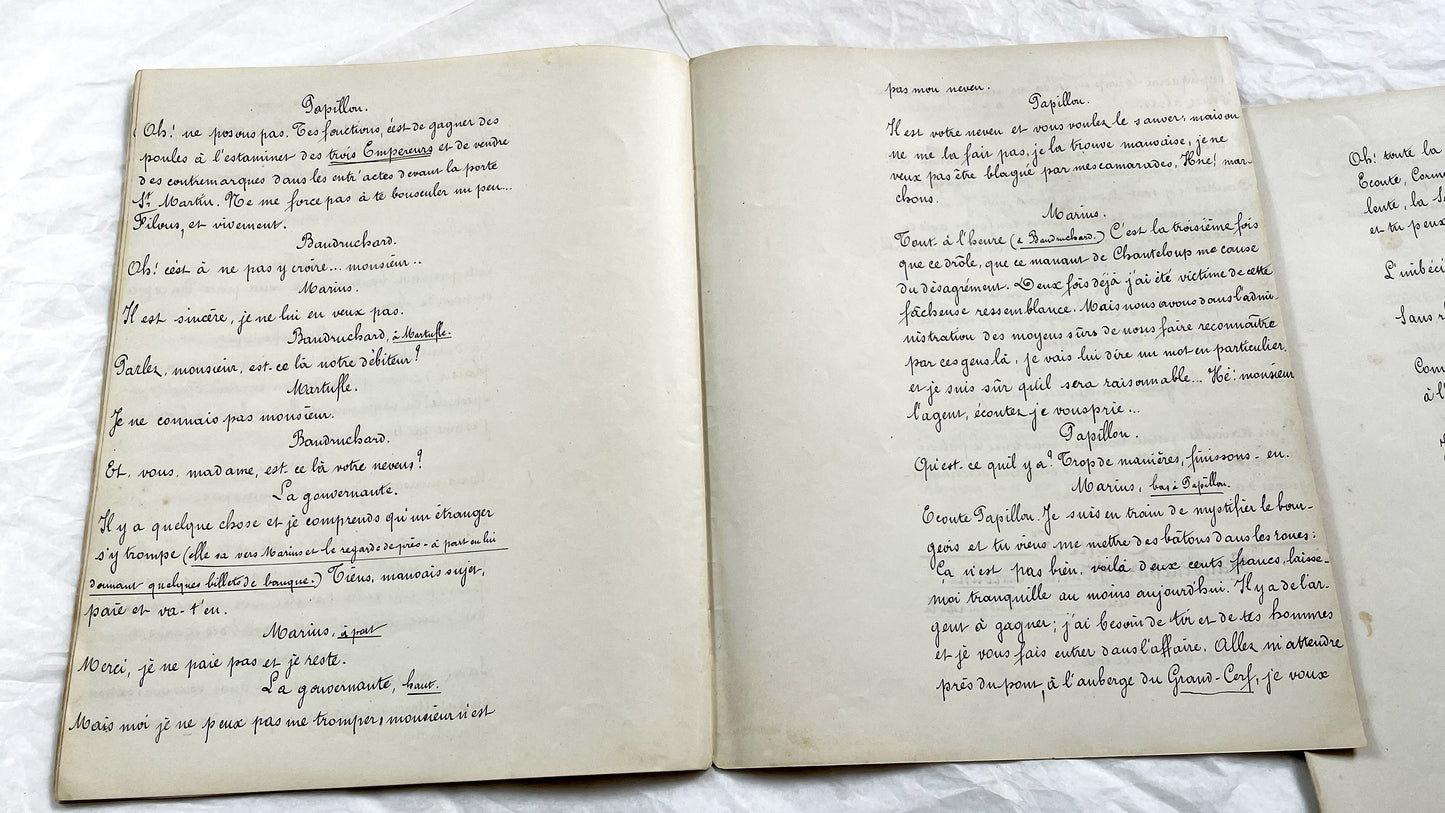 Papillon.
Oh! ne posons pas. Tes fonctions, c'est de gagner des
poules à l'estaminet des trois Empereurs et de vendre
des contremarques dans les entr'actes devant la porte
St. Martin. Ne me force pas à te bousculer un peu...
Filous, et vivement.
Baudruchard.
Oh! c'est à ne pas y croire... monsieur..
Marius.
Il est sincère, je ne lui en veux pas.
Baudruchard, à Martufle.
Parlez, monsieur, est-ce là notre débiteur?
Martufle.
Je ne connais pas monsieur.
Baudruchard.
Et, vous, madame, est-ce là votre neveu?
La gouvernante.
Il y a quelque chose et je comprends qu'un étranger
s'y trompe (elle va vers Marius et le regarde de près - à part en lui
donnant quelques billets de banque.) Tiens, mauvais sujet,
paie et va-t'en.
Marius, à part
Merci, je ne paie pas et je reste.
La gouvernante, haut.
Mais moi je ne peux pas me tromper, monsieur n'est
pas mon neveu.
Papillon.
Il est votre neveu et vous voulez le sauver; mais on
ne me la fait pas, je la trouve mauvaise, je ne
veux pas être blagué par mes camarades, Hne! mar-
chons.
Marius.
Tout-à l'heure (à Baudruchard.) C'est la troisième fois
que ce drôle, que ce manant de Chanteloup me cause
du désagrément. Deux fois déjà j'ai été victime de cette
fâcheuse ressemblance. Mais nous avons dans l'admi-
nistration des moyens sûrs de nous faire reconnaître
par ces gens là, je vais lui dire un mot en particulier,
et je suis sûr qu'il sera raisonnable... Hé! monsieur
l'agent, écoutez je vous prie...
Papillon.
Qu'est-ce qu'il y a? Trop de manières, finissons-en.
Marius, bas à Papillon.
Ecoute Papillon. Je suis en train de mystifier le bour-
geois et tu viens me mettre des bâtons dans les roues:
Ça n'est pas bien, voilà deux cents francs, laisse-
moi tranquille au moins aujourd'hui. Il y a de l'ar-
gent à gagner; j'ai besoin de toi et de tes hommes
et je vous fais entrer dans l'affaire. Allez m'attendre
près du pont, à l'auberge du Grand-Cerf, je vous
Oh! toute la
Ecoute,
la
et tu peux
L'imbéci
Sans
Com
à l'